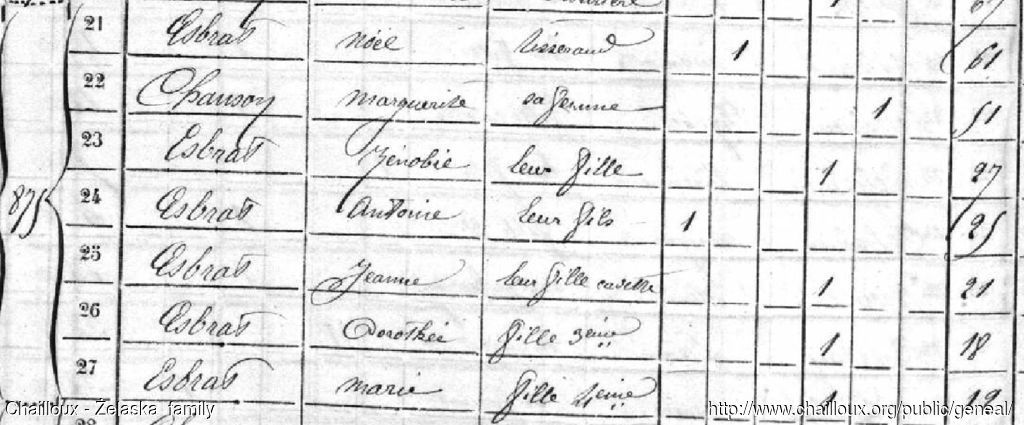 21 Esbrat Noël tisserand 1 61
22 Chanson Marguerite sa femme 1 51
23 Esbrat Zénobie leur fille 1 27
875 24 Esbrat Antoine leur fils 1 25
25 Esbrat Jeanne leur fille cadette 1 21
26 Esbrat Dorothée fille 3eme 1 18
27 Esbrat Marie fille 4eme 1
Chailloux - Zelaska family http://www.chailloux.org/public/geneal/